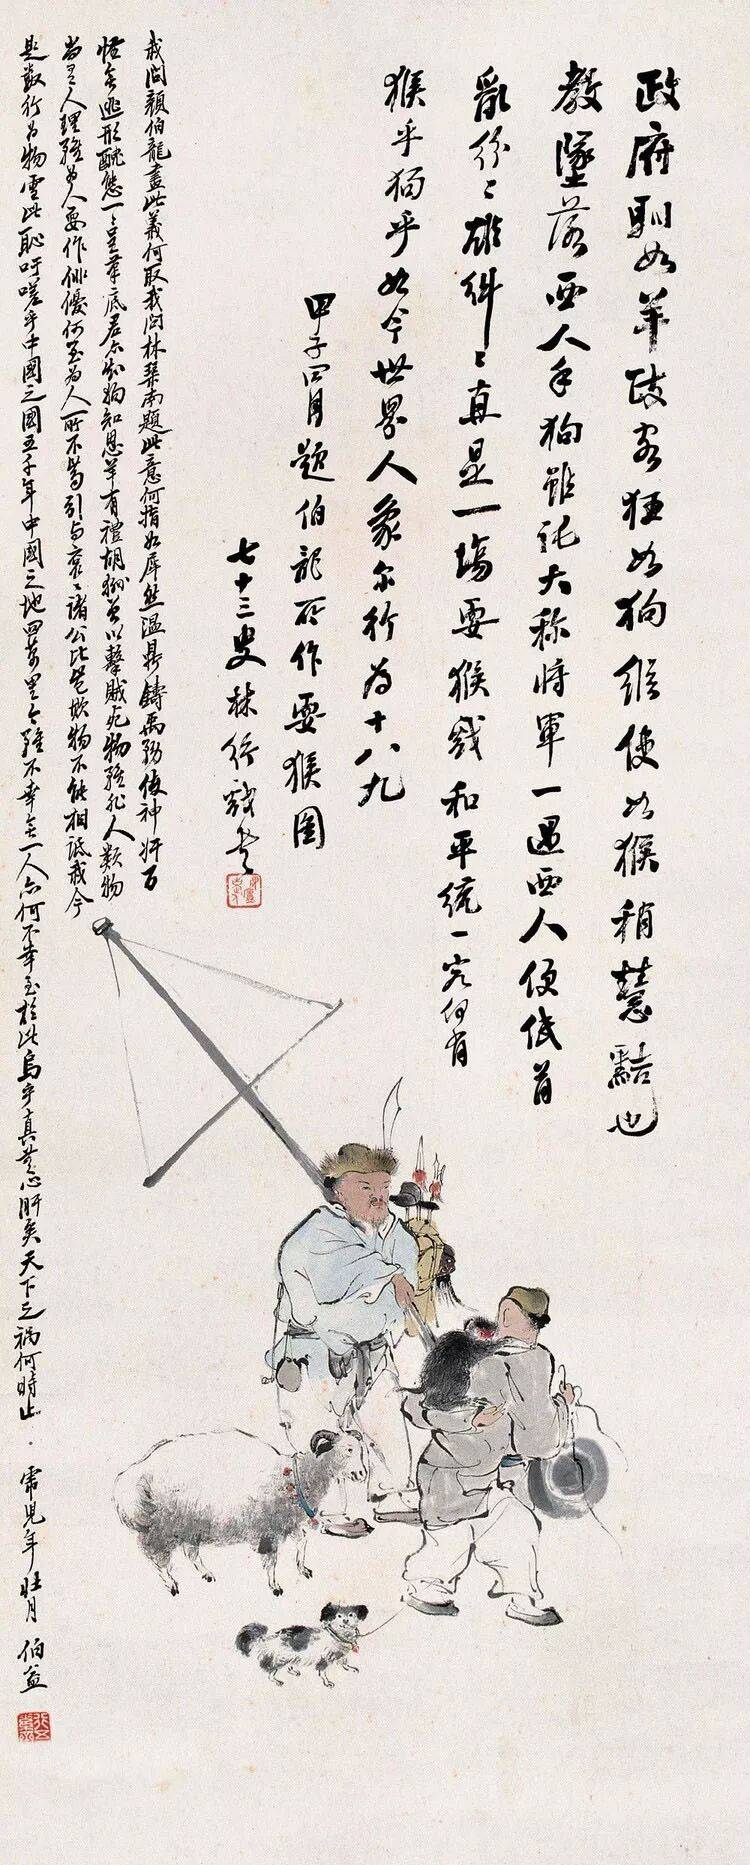 政府馴如羊政客狂如狗縱使如猴稍慧黠也
教墜落西人手狗雖託大称將軍一遇西人便低首
亂紛〻雄糾〻真是一塲耍猴戲和平統一究何有
猴乎狗乎如今世界人象尔行為十八九
甲子四月題伯龍所作耍猴圖
七十三叟林紓戲書
我問顏伯龍畫此義何取我問林琴南題此意何指如犀然温鼎鑄禹務使神奸百
怪無逃形醜態一〻呈筆底君不知狗知恩羊有禮胡猻曾以擊賊死物雖非人類物
尚具人理雖為人耍作俳優何至為人所不齒引与衮〻諸公比是欺物不能相詆我今
題數行為物雪此恥吁嗟乎中國之國五千年中國之地四萬里雖不幸無一人亦何不幸至於此烏乎真無心肝矣天下之禍何時止
年壯月 伯益